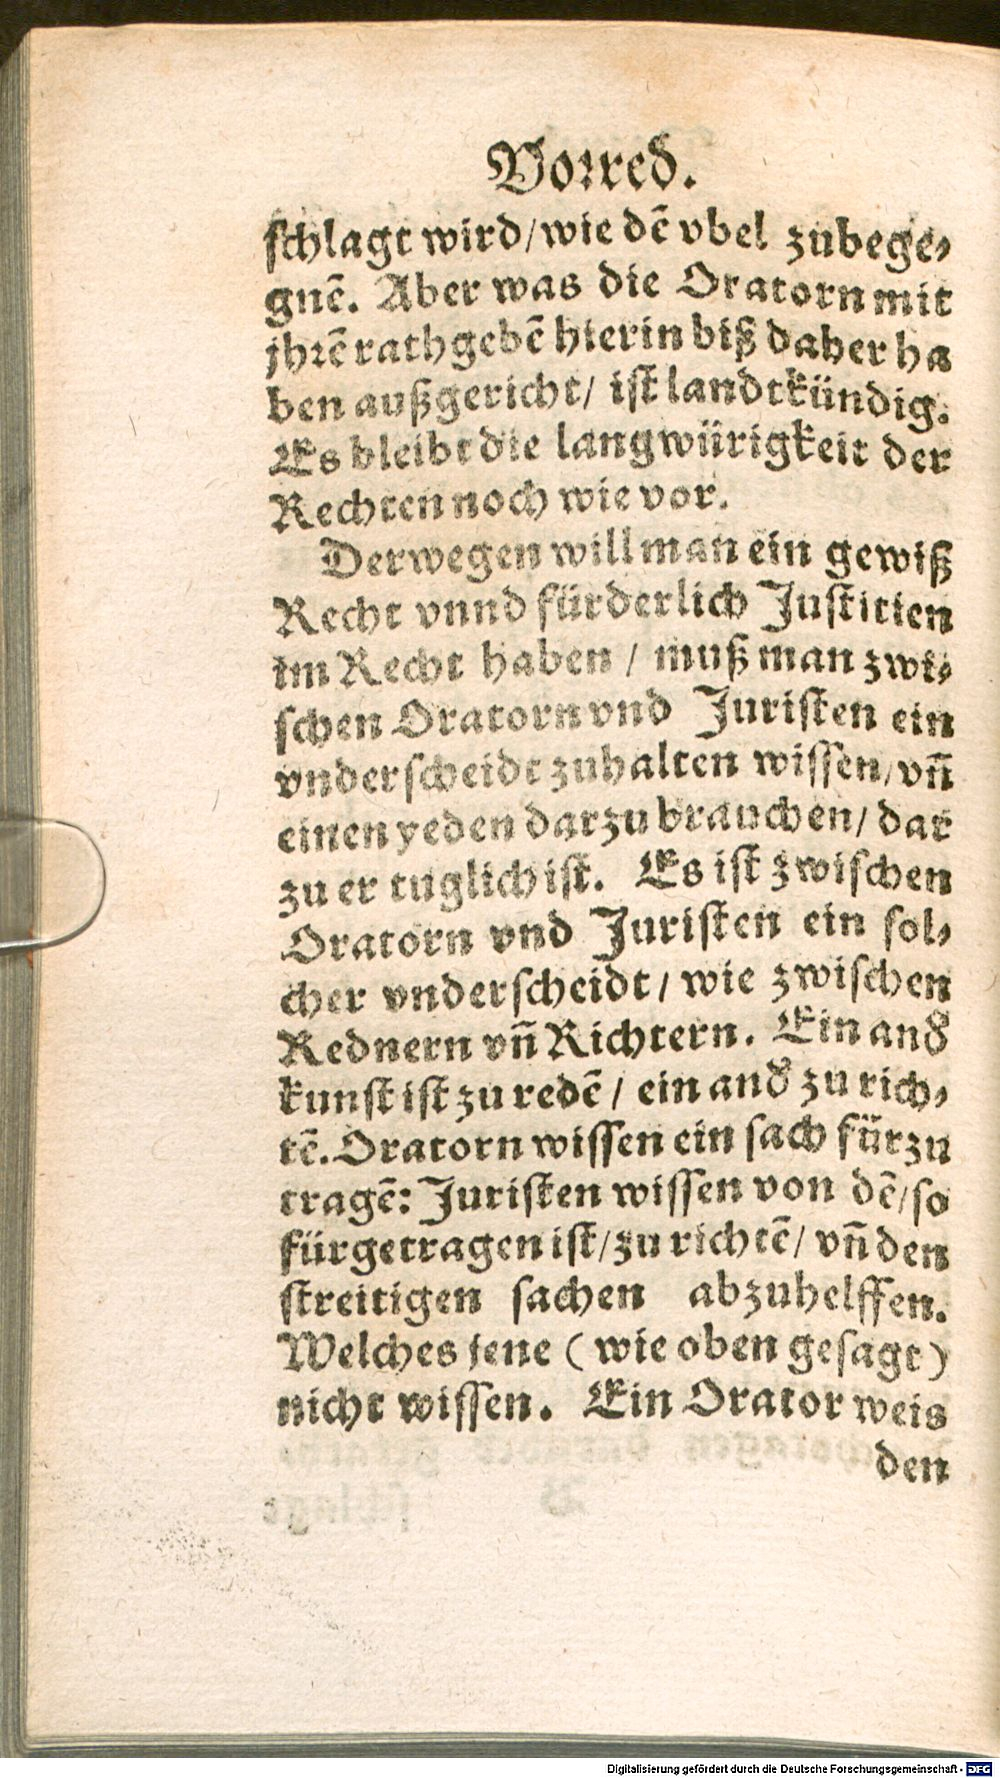 Vorred.
schlagt wird/wie dē vbel zubege⸗
gnē. Aber was die Oratorn mit
jhrē rathgebē hierin biß daher ha
ben außgericht/ ist landtkündig.
Es bleibt die langwürigkeit der
Rechten noch wie vor.
Derwegen will man ein gewiß
Recht vnnd fürderlich Justitien
im Recht haben / muß man zwi⸗
schen Oratorn vnd Juristen ein
vnderscheidt zuhalten wissen/vñ
einen yeden darzu brauchen/ dar
zu er tuglich ist. Es ist zwischen
Oratorn vnd Juristen ein sol⸗
cher vnderscheidt/ wie zwischen
Rednern vñ Richtern. Ein and̕
kunst ist zu redē/ ein and̕ zu rich⸗
tē. Oratorn wissen ein sach fürzu
tragē: Juristen wissen von dē/so
fürgetragen ist/zu richtē/ vñ den
streitigen sachen abzuhelffen.
Welches jene (wie oben gesagt)
nicht wissen. Ein Orator weis
den
Digitalisierung gefördert durch die Deutsche Forschungsgemeinschaft - DFG